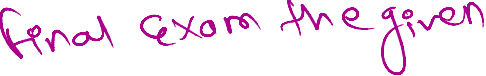 Final exam the given